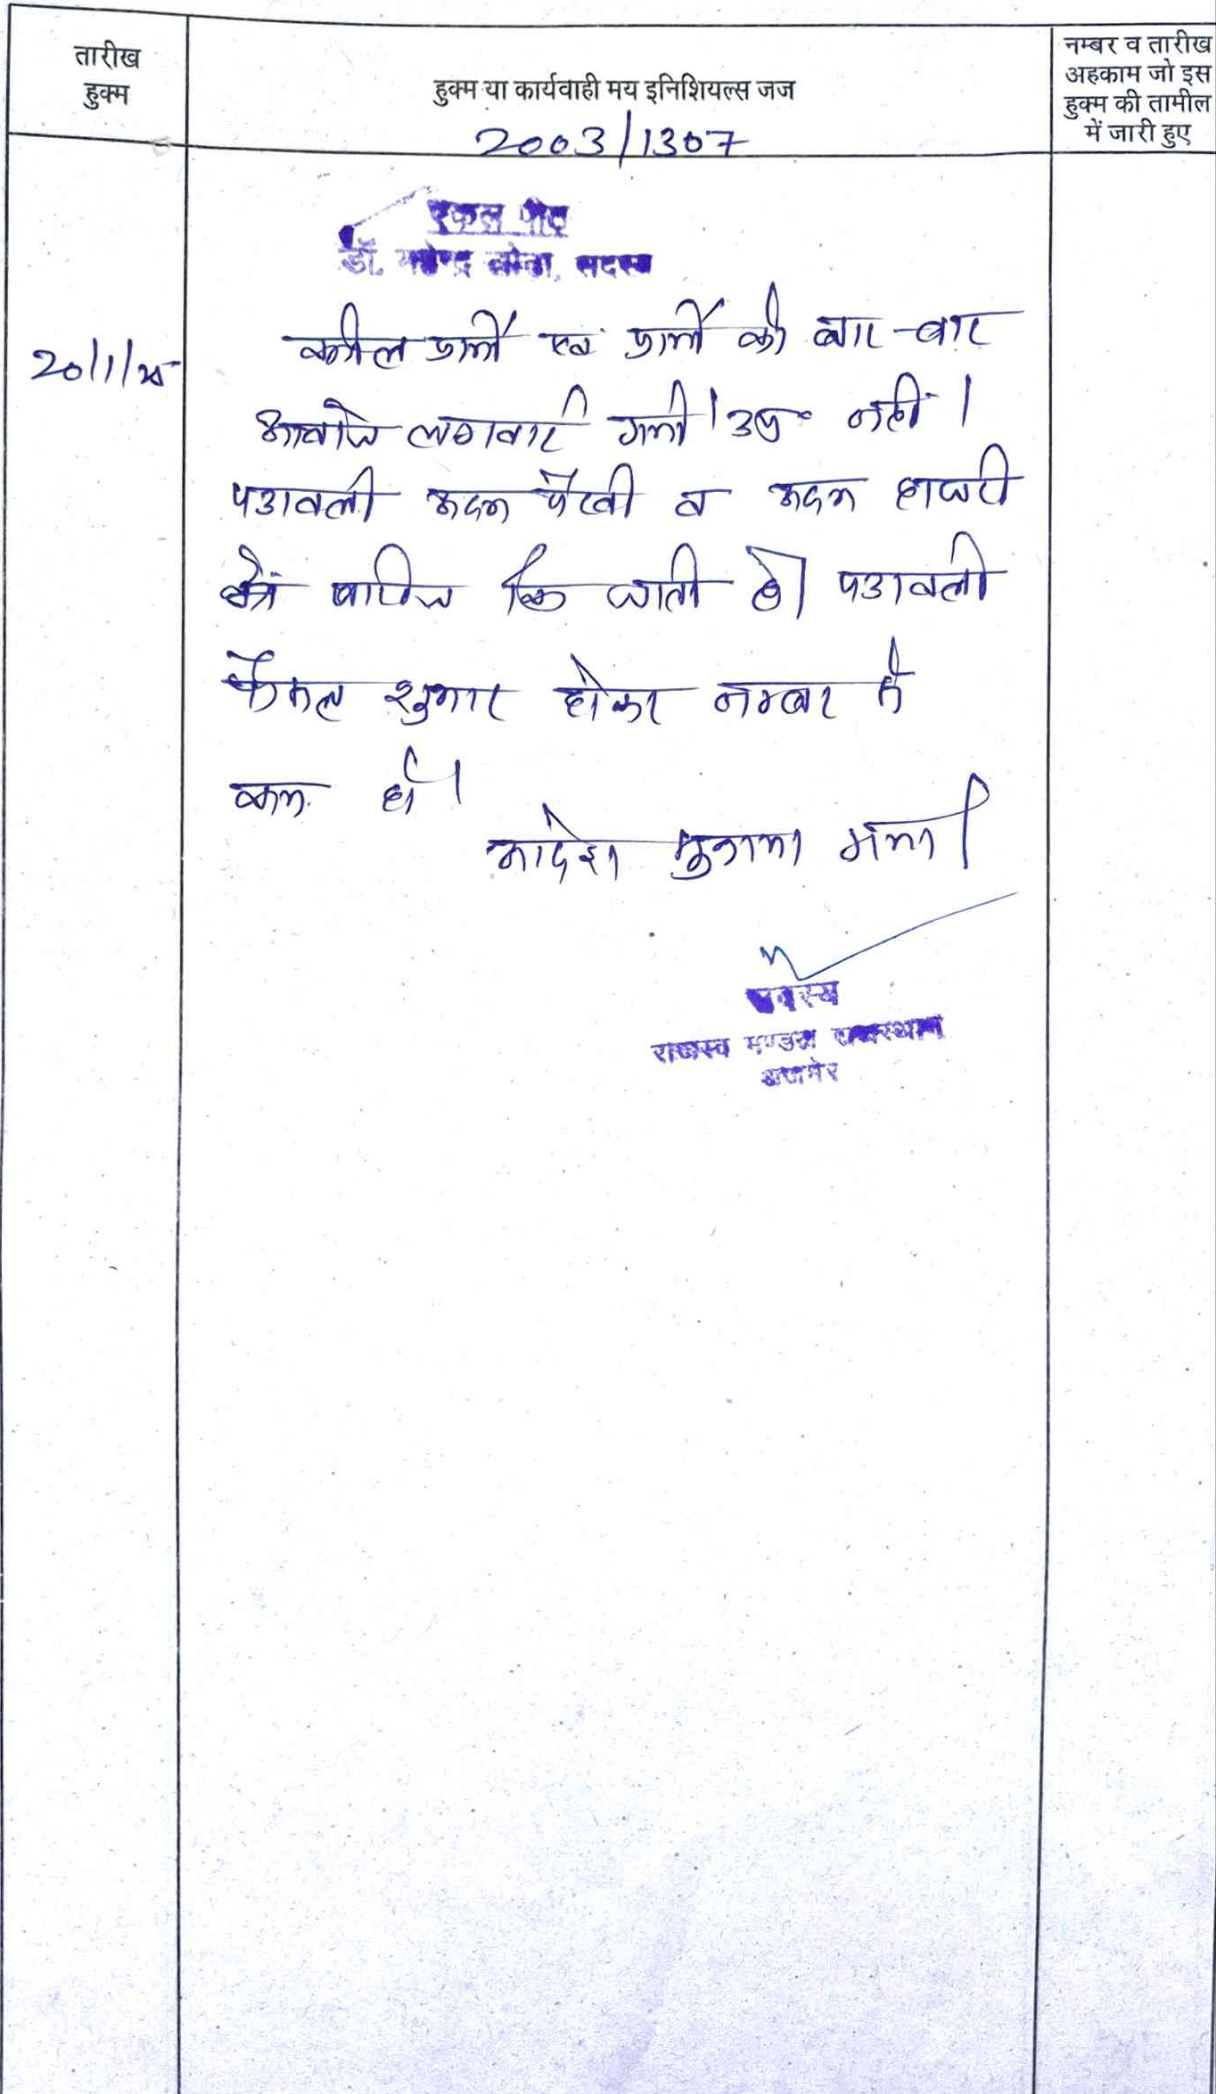 तारीख
हुक्म
हुक्म या कार्यवाही मय इनिशियल्स जज
नम्बर व तारीख
अहकाम जो इस
हुक्म की तामील
में जारी हुए
2003/1307
एकल पीठ
डॉ. महेन्द्र लोढ़ा, सदस्य
20/1/25
वकील प्रार्थी एवं प्रार्थी को बार-बार
आवाजे लगवाई गयी। उप० नहीं।
पत्रावली अदम पैरवी व अदम हाजरी
में खारिज कि जाती है। पत्रावली
फैसल शुमार होकर नम्बर से
कम हो।
आदेश सुनाया गया।
सदस्य
राजस्व मण्डल राजस्थान
अजमेर